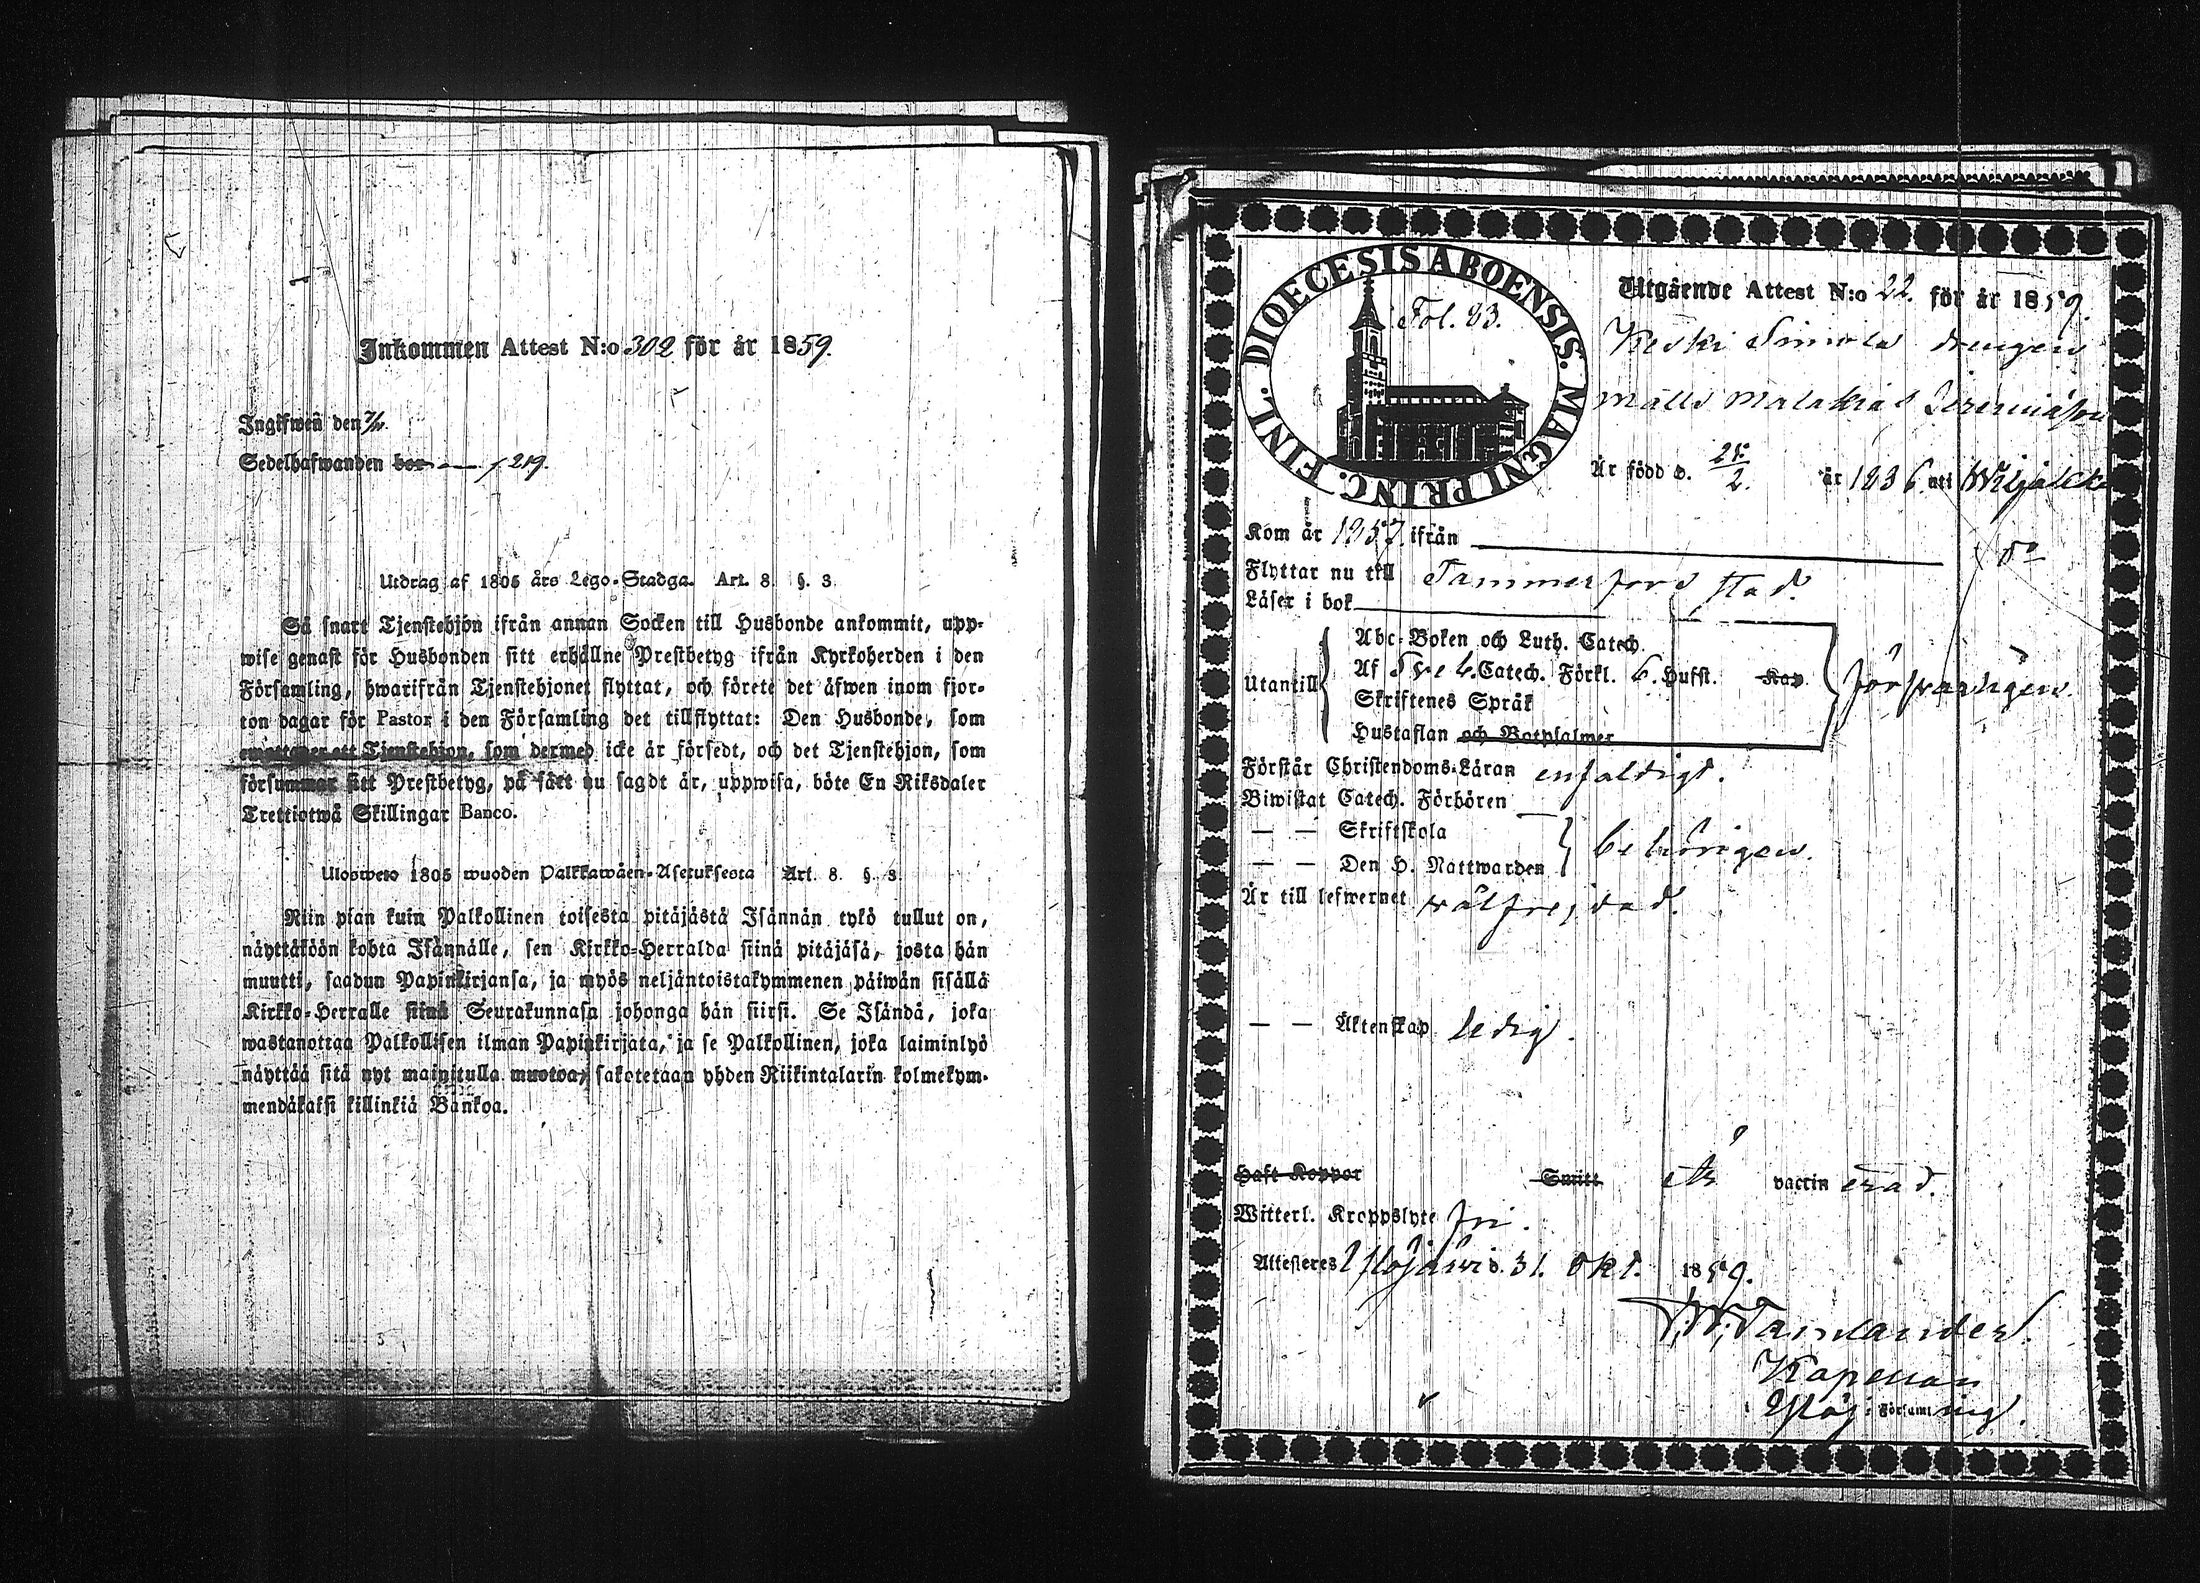 Inkommen Attest N:o 302 för år 1859.
Ingifwen den 7/11.
Sedelhafwanden bor p 219.
Utdrag af 1805 års Lego-Stadga. Art. 8. §. 3.
Så snart Tjenstehjon ifrån annan Socken till Husbonde ankommit, upp-
wise genast för Husbonden sitt erhållne Prestbetyg ifrån Kyrkoherden i den
Församling, hwarifrån Tjenstehjonet flyttat, och förete det äfwen inom fjor-
ton dagar för Pastor i den Församling det tillflyttat: Den Husbonde, som
emottager ett Tjenstehjon, som dermed icke är försedt, och det Tjenstehjon, som
försummar sitt Prestbetyg, på sätt nu sagdt är, uppwisa, böte En Riksdaler
Trettiotwå Skillingar Banco.
Ulosweto 1805 wuoden Palkkawäen-Asetuksesta Art. 8. §. 3.
Niin pian kuin Palkollinen toisesta pitäjästä Isännän tykö tullut on,
näyttäköön kohta Isännälle, sen Kirkko-Herralda siinä pitäjäsä, josta hän
muutti, saadun Papinkirjansa, ja myös neljäntoistakymmenen päiwän sisällä
Kirkko-Herralle siinä Seurakunnasa johonga hän siirsi. Se Isändä, joka
wastanottaa Palkollisen ilman Papinkirjata, ja se Palkollinen, joka laiminlyö
näyttää sitä nyt mainitulla muotoa, sakotetaan yhden Riikintalarin kolmekym-
mendäkaksi killinkiä Bankoa.
DIOECESIS ABOENSIS. MAGNI PRINC. FINL.
Fol. 83.
Utgående Attest N:o 22. för år 1859.
Keski Simola drengen
Matts Malakias Jeremiasson
Är född d. 25/2. år 1836. uti Wiljakka
Kom år 1857. ifrån do
Flyttar nu till Tammerfors stad.
Läser i bok
Utantill
Abc-Boken och Luth. Catech.
Af Sveb. Catech. Förkl. 6. Hufst. Kap.
Skriftenes Språk
Hustaflan och Botpsalmer
försvarligen.
Förstår Christendoms-Läran enfaldigt.
Biwistat Catech. Förhören
— — Skriftskola
— — Den H. Nattwarden
behörigen.
Är till lefwernet wälfrejdad.
— — Äktenskap ledig.
Haft Koppor Smitt är vaccinerad.
Witterl. Kroppslyte fri.
Attesteres Ylöjärwi d. 31. Okt. 1859.
Kapellan
Ylöj. Församling.